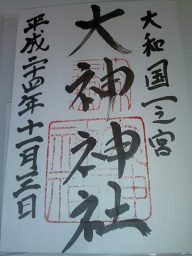 大和国一之宮
大神神社
平成二十四年十一月三日